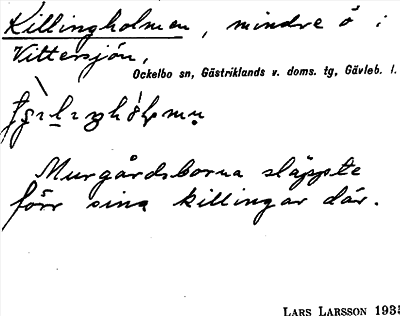 Killingholmen, mindre ö i
Vittersjön,
Ockelbo sn, Gästriklands v. doms. tg, Gävleb. l.
Murgårdsborna släppte
förr sina killingar där.
LARS LARSSON 1935